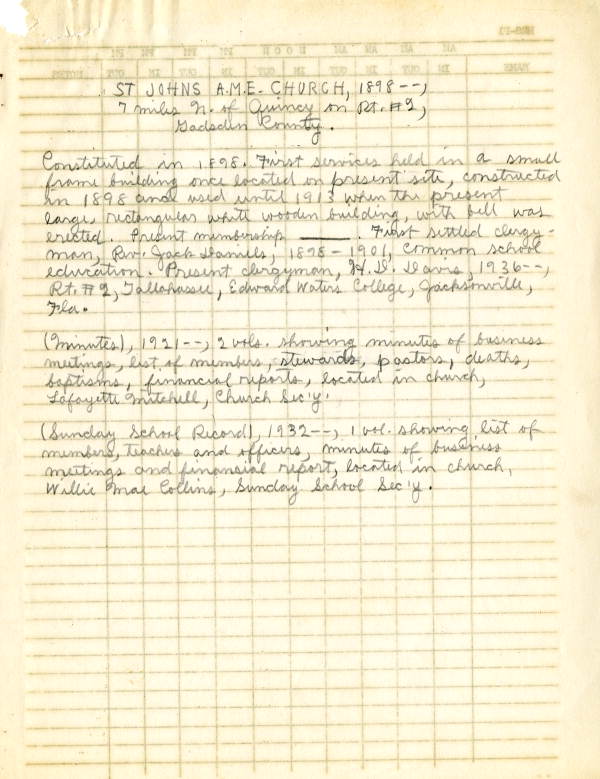 HRS-11
AM AM AM NOON PM PM PM PM
NAME OUT IN OUT IN OUT IN OUT IN OUT IN OUT NOTES
ST JOHNS A.M.E. CHURCH, 1898--,
7 miles N. of Quincy on Rt. #2,
Gadsden County.
Constituted in 1898. First services held in a small
frame building once located on present site, constructed
in 1898 and used until 1913 when the present
large, rectangular white wooden building, with bell was
erected. Present membership ____. First settled clergy-
man, Rev. Jack Daniels, 1898-1901, Common school
education. Present clergyman, H. D. Davis, 1936--,
Rt. #2, Tallahassee, Edward Waters College, Jacksonville,
Fla.
(Minutes), 1921--, 2 vols. showing minutes of business
meetings, list of members, stewards, pastors, deaths,
baptisms, financial reports, located in church,
Lafayette Mitchell, Church Sec'y.
(Sunday School Record), 1932--, 1 vol. showing list of
members, teachers and officers, minutes of business
meetings and finansial report, located in church,
Willie Mae Collins, Sunday School Sec'y.